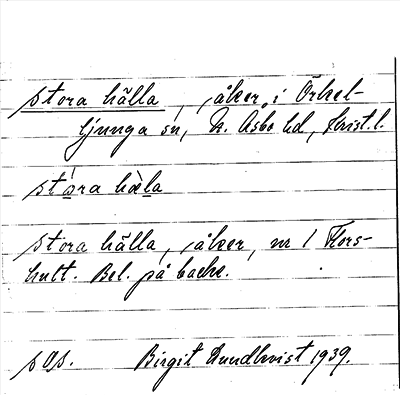 stora hälla, åker, i Örkel-
ljunga sn, N. Åsbo hd, Krist. l.
stora hæla
stora hälla, åker, nr 1 Flors-
hult. Bel. på backe.
s Os. Birgit Lundkvist 1939.